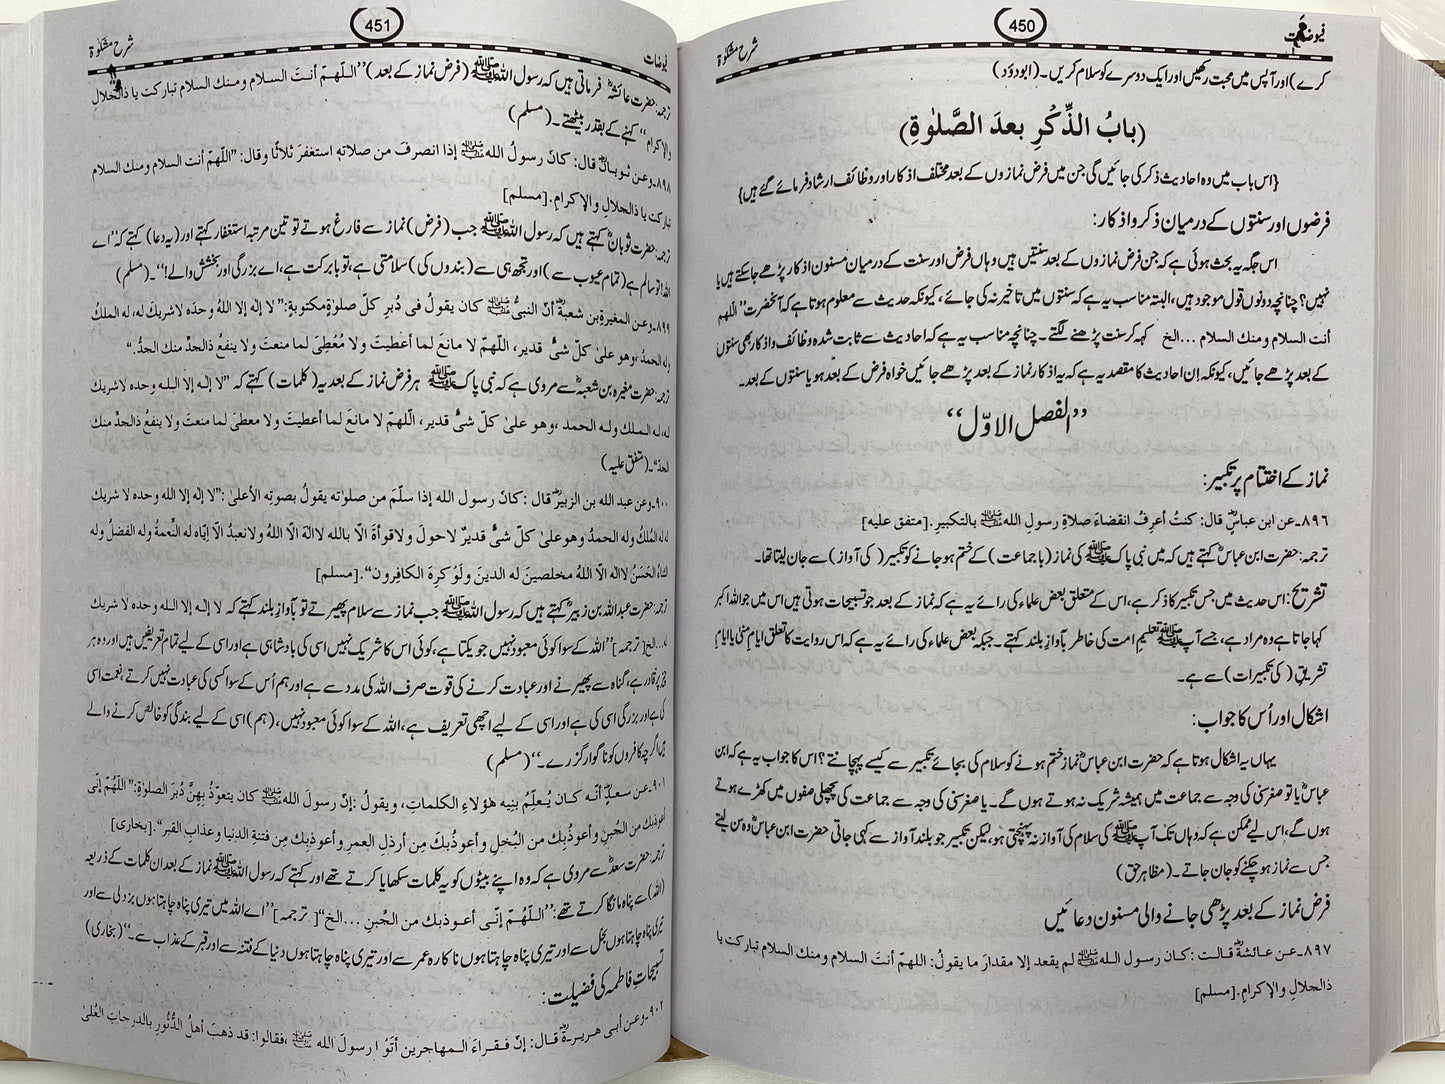 فیوضات
450
شرح مشکوٰۃ
کرے) اور آپس میں محبت رکھیں اور ایک دوسرے کو سلام کریں۔ (ابوداؤد)
(بابُ الذِّكْرِ بعدَ الصَّلوٰةِ)
{اس باب میں وہ احادیث ذکر کی جائیں گی جن میں فرض نمازوں کے بعد مختلف اذکار اور وظائف ارشاد فرمائے گئے ہیں}
فرضوں اور سنتوں کے درمیان ذکر واذکار:
اس جگہ یہ بحث ہوئی ہے کہ جن فرض نمازوں کے بعد سنتیں ہیں وہاں فرض اور سنت کے درمیان مسنون اذکار پڑھے جاسکتے ہیں یا
نہیں؟ چنانچہ دونوں قول موجود ہیں، البتہ مناسب یہ ہے کہ سنتوں میں تاخیر نہ کی جائے، کیونکہ حدیث سے معلوم ہوتا ہے کہ آنحضرت "اللّٰهم
أنت السلام ومنك السلام ...الخ کہہ کر سنت پڑھنے لگتے۔ چنانچہ مناسب یہ ہے کہ احادیث سے ثابت شدہ وظائف واذکار بھی سنتوں
کے بعد پڑھے جائیں، کیونکہ اِن احادیث کا مقصد یہ ہے کہ یہ اذکار نماز کے بعد پڑھے جائیں خواہ فرض کے بعد ہو یا سنتوں کے بعد۔
"الفصل الاوّل"
نماز کے اختتام پر تکبیر:
۸۹۶۔عن ابن عباسؓ قال: كنتُ أعرِفُ انقضاءَ صلاةِ رسولِ اللهﷺ بالتكبيرِ.[متفق عليه]
ترجمہ: حضرت ابن عباسؓ کہتے ہیں کہ میں نبی پاکﷺ کی نماز (با جماعت) کے ختم ہو جانے کو تکبیر (کی آواز) سے جان لیتا تھا۔
تشریح: اس حدیث میں جس تکبیر کا ذکر ہے، اس کے متعلق بعض علماء کی رائے یہ ہے کہ نماز کے بعد جو تسبیحات ہوتی ہیں اس میں جو اللہ اکبر
کہا جاتا ہے وہ مراد ہے، جسے آپﷺ تعلیمِ امت کی خاطر بآوازِ بلند کہتے۔ جبکہ بعض علماء کی رائے یہ ہے کہ اس روایت کا تعلق ایامِ منیٰ یا ایامِ
تشریق (کی تکبیرات) سے ہے۔
اشکال اور اُس کا جواب:
یہاں یہ اشکال ہوتا ہے کہ حضرت ابن عباسؓ نماز ختم ہونے کو سلام کی بجائے تکبیر سے کیسے پہچانتے؟ اس کا جواب یہ ہے کہ ابن
عباسؓ یا تو صغرسنی کی وجہ سے جماعت میں ہمیشہ شریک نہ ہوتے ہوں گے۔ یا صغرسنی کی وجہ سے جماعت کی پچھلی صفوں میں کھڑے ہوتے
ہوں گے، اس لیے ممکن ہے کہ وہاں تک آپﷺ کی سلام کی آواز نہ پہنچتی ہو، لیکن تکبیر جو بلند آواز سے کہی جاتی حضرت ابن عباسؓ وہ سن لیتے
جس سے نماز ہو چکنے کو جان جاتے۔ (مظاہر حق)
فرض نماز کے بعد پڑھی جانے والی مسنون دعائیں
۸۹۷۔عن عائشةؓ قالت: كان رسول اللهﷺ لم يقعد إلا مقدارَ ما يقولُ: اللهمّ أنتَ السلام ومنك السلام تبارکت یا
ذالجلالِ والإكرامِ.[مسلم]
فیوضات
451
شرح مشکوٰۃ
ترجمہ: حضرت عائشہؓ فرماتی ہیں کہ رسول اللہﷺ (فرض نماز کے بعد) "اللّٰهمّ أنتَ السلام ومنك السلام تباركت يا ذالجلالِ
والإكرام" کہنے کے بقدر بیٹھتے۔ (مسلم)
۸۹۸۔وعن ثوبانؓ قال: كانَ رسولُ اللهﷺ إذا انصرفَ من صلاتهِ استغفرَ ثلاثًا وقال: "اللّٰهمّ أنت السلام ومنك السلام
تباركت يا ذالجلالِ والإكرامِ.[مسلم]
ترجمہ: حضرت ثوبانؓ کہتے ہیں کہ رسول اللہﷺ جب (فرض) نماز سے فارغ ہوتے تو تین مرتبہ استغفار کہتے اور (یہ دعا) کہتے کہ "اے
اللہ تو سالم ہے (تمام عیوب سے) اور تجھ ہی سے (بندوں کی) سلامتی ہے، تو بابرکت ہے، اے بزرگی اور بخشش والے!"۔ (مسلم)
۸۹۹۔وعن المغيرةِ بن شعبةؓ أنّ النبىَّﷺ كان يقولُ فى دُبرِ كلّ صلوٰةٍ مكتوبةٍ: "لا إلٰه إلا اللهُ وحدَه لاشريكَ له، له الملكُ
وله الحمدُ، وهو علىٰ كلّ شئٍ قدير، اللّٰهمّ لا مانعَ لما أعطيتَ ولا مُعْطِىَ لما منعتَ ولا ينفعُ ذالجدّ منك الجدُّ."
ترجمہ: حضرت مغیرہ بن شعبہؓ سے مروی ہے کہ نبی پاکﷺ ہر فرض نماز کے بعد یہ (کلمات) کہتے کہ "لا إلٰه إلا اللّٰه وحده لا شريك
له، له الملك وله الحمد، وهو علىٰ كلّ شئٍ قدير، اللّٰهمّ لا مانعَ لما أعطيتَ ولا معطىَ لما منعتَ ولا ينفعُ ذالجدّ منك
الجدّ"۔ (متفق علیہ)
۹۰۰۔وعن عبد الله بن الزبيرؓ قال: كانَ رسول الله إذا سلّمَ من صلوٰته يقولُ بصوتِه الأعلىٰ: "لا إلٰه إلا الله وحده لا شريك
له له المُلكُ وله الحمدُ وهو علىٰ كلّ شئٍ قديرٌ لاحول ولاقوةَ الّا بالله لاالٰهَ الّا اللهُ ولانعبدُ الّا ايّاه له النِّعمةُ وله الفضلُ وله
الثناءُ الحَسَنُ لاالٰه الّا اللهُ مخلصينَ له الدينَ ولَو كرِهَ الكافِرون".[مسلم]
ترجمہ: حضرت عبداللہ بن زبیرؓ کہتے ہیں کہ رسول اللہﷺ جب نماز سے سلام پھیرتے تو بآوازِ بلند کہتے کہ لا إلٰه إلا اللّٰه وحده لا شريك
له...الخ [ترجمہ] "اللہ کے سوا کوئی معبود نہیں جو یکتا ہے، کوئی اس کا شریک نہیں اسی کی بادشاہی ہے اور اسی کے لیے تمام تعریفیں ہیں اور وہ ہر
چیز پر قادر ہے، گناہ سے پھیرنے اور عبادت کرنے کی قوت صرف اللہ کی مدد سے ہے اور ہم اُس کے سوا کسی کی عبادت نہیں کرتے، نعمت اسی
کی ہے اور بزرگی اسی کی ہے اور اسی کے لیے اچھی تعریف ہے، اللہ کے سوا کوئی معبود نہیں، (ہم) اسی کے لیے بندگی کو خالص کرنے والے
ہیں اگرچہ کافروں کو ناگوار گزرے۔" (مسلم)
۹۰۱۔عن سعدٍؓ أنّه كان يُعلّمُ بَنِيه هؤلاءِ الكلماتِ، ويقولُ: إنّ رسولَ اللهﷺ كان يتعوّذُ بِهنَّ دُبرَ الصلوٰةِ: "اللّٰهُمّ إنّى
أعوذبك من الجُبنِ وأعوذُبك من البُخلِ وأعوذُبكَ مِن أرذلِ العمرِ وأعوذبك مِن فتنةِ الدنيا وعذابِ القبرِ".[بخاری]
ترجمہ: حضرت سعدؓ سے مروی ہے کہ وہ اپنے بیٹوں کو یہ کلمات سکھایا کرتے تھے اور کہتے کہ رسول اللہﷺ نماز کے بعد ان کلمات کے ذریعہ
(اللہ) سے پناہ مانگا کرتے تھے: "اللّٰهُمّ إنّى أعوذبك من الجُبنِ ...الخ" [ترجمہ] "اے اللہ میں تیری پناہ چاہتا ہوں بزدلی سے اور
تیری پناہ چاہتا ہوں بخل سے اور تیری پناہ چاہتا ہوں ناکارہ عمر سے اور تیری پناہ چاہتا ہوں دنیا کے فتنہ سے اور قبر کے عذاب سے۔" (بخاری)
تسبیحاتِ فاطمہ کی فضیلت:
۹۰۲۔وعن أبى هريرةؓ قال: إنّ فقراءَ المهاجرين أتَوُا رسولَ اللهﷺ، فقالوا: قد ذهبَ أهلُ الدُّثورِ بالدرجاتِ العُلىٰ